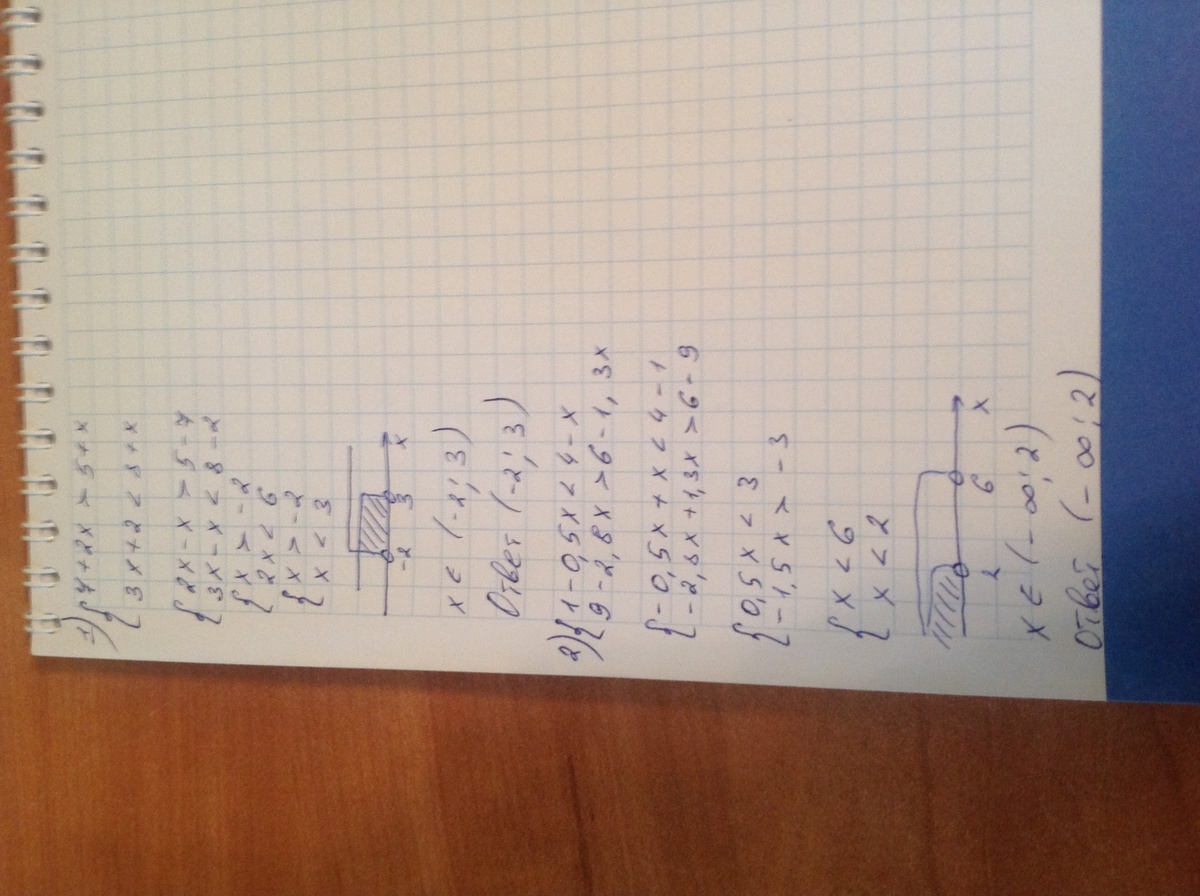 1) { 7+2x > 5+x
3x+2 < 8+x
{ 2x-x > 5-7
3x-x < 8-2
{ x > -2
2x < 6
{ x > -2
x < 3
-2 3 x
x ∈ (-2; 3)
Ответ (-2; 3)
2) { 1-0,5x < 4-x
9-2,8x > 6-1,3x
{ -0,5x+x < 4-1
-2,8x+1,3x > 6-9
{ 0,5x < 3
-1,5x > -3
{ x < 6
x < 2
2 6 x
x ∈ (-∞; 2)
Ответ (-∞; 2)